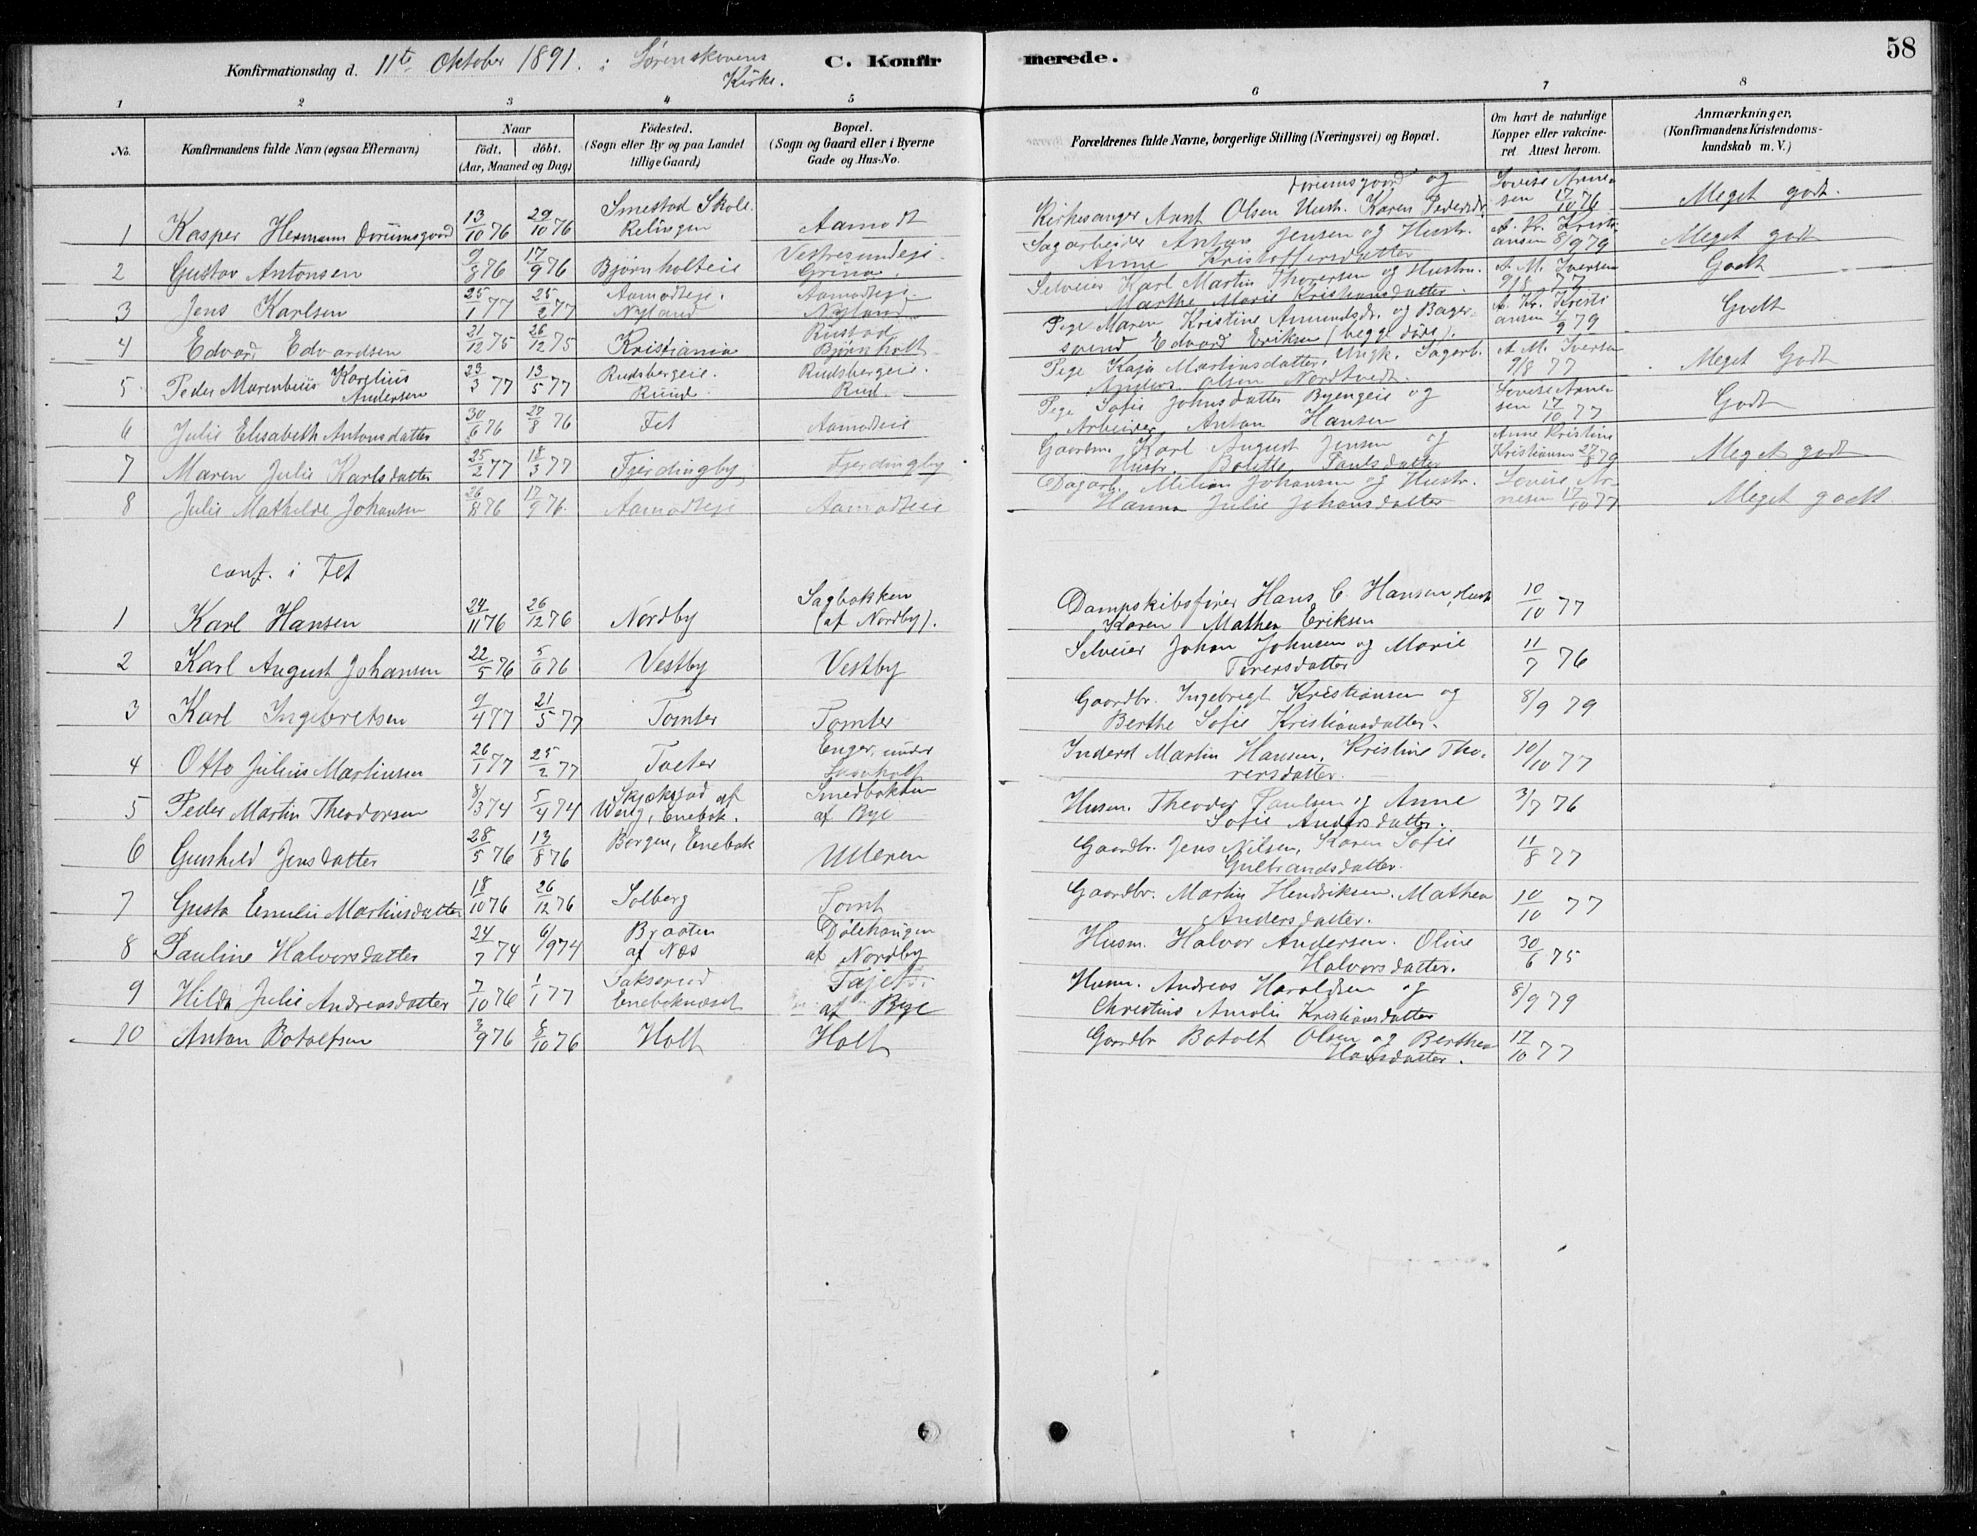 58
Konfirmationsdag d. 11te Oktober 1891. i Sørenskovens Kirke. C. Konfirmerede.
1 2 3 4 5 6 7 8
No. Konfirmandens fulde Navn (ogsaa Efternavn) Naar født. døbt. (Aar, Maaned og Dag) Fødested. (Sogn eller By og paa Landet tillige Gaard) Bopæl. (Sogn og Gaard eller i Byerne Gade og Hus-No. Forældrenes fulde Navne, borgerlige Stilling (Næringsvei) og Bopæl. Om havt de naturlige Kopper eller vakcineret Attest herom. Anmærkninger, (Konfirmandens Kristendomskundskab m. V.)
1 Kasper Hermann Dorumsgaard 13/10 76 29/10 76 Smestad Skole. Relingen Aamodt Kirkesanger Arnt Olsen Dorumsgaard og Hustr. Karen Pedersdr. Lovise Arnesen 17/10 76 Meget godt.
2 Gustav Antonsen 9/8 76 17/9 76 Bjørnholteie Vestresundeje Grina. Sagarbeider Anton Jensen og Hustr. Anne Kristoffersdatter A. Kr. Kristiansen 8/9 79 Meget godt
3 Jens Karlsen 25/1 77 25/2 77 Aamodteje. Nyland Aamodteje. Nyland Selveier Karl Martin Thoresen og Hustru. Marthe Marie Kristiansdatter. A. M. Iversen 9/8 77 Godt
4 Edvard Edvardsen 21/12 75 26/12 75 Kristiania Rustad Bjørnholt Pige Maren Kristine Amundsdr. og Bagersvend Edvard Eriksen (begge døde). A. Kr. Kristiansen 4/9 79 Godt
5 Peder Marenbeus Karelius Andersen 23/3 77 13/5 77 Rudsbergeie. Ruud. Rudsbergeie. Rud. Pige Kaja Martinsdatter, Ungk. Sagarb. Anders Olsen Nordtvedt. A. M. Iversen 9/8 77 Meget Godt
6 Julie Elisabeth Antonsdatter 30/6 76 27/8 76 Fet Aamodteie Pige Sofie Johnsdatter Byengeie og Arbeider Anton Hansen Lovise Arnesen 17/10 77 Godt
7 Maren Julie Karlsdatter 25/2 77 18/3 77 Fjerdingby Fjerdingby Gaardm. Karl August Jensen og Hustr. Bolette Paulsdatter Anne Kristine Kristiansen 27/8 79 Meget godt
8 Julie Mathilde Johansen 26/8 76 17/9 76. Aamodteje Aamodteie Dagarb. Milian Johansen og Hustr. Hanna Julie Johansdatter Lovise Arnesen 17/10 77 Meget godt
conf. i Fet
1 Karl Hansen 24/11 76 26/12 76 Nordby Sagbakken (af Nordby). Dampskibsfører Hans C. Hansen, Hust Karen Mathea Eriksen 10/10 77
2 Karl August Johansen 22/5 76 5/6 76 Vestby Vestby Selveier Johan Johnsen og Marie Torersdatter 11/7 76
3 Karl Ingebretsen 9/4 77 21/5 77 Tomter Tomter Gaardbr. Ingebrigt Kristiansen og Berthe Sofie Kristiansdatter. 8/9 79
4 Otto Julius Martinsen 26/1 77 25/2 77 Toeter Enger, under Inderst Martin Hansen, Kristine Thorersdatter. 10/10 77
5 Peder Martin Theodorsen 8/3 74 5/4 74 af Enebak. Smedbakken af Bye Husm. Theodor Paulsen og Anne Sofie Andersdatter. 3/7 76
6 Gunhild Jensdatter 28/5 76 13/8 76 Borgen, Enebak Ulleren Gaardbr. Jens Nilsen, Karen Sofie Gulbrandsdatter. 11/8 77
7 Gusta Emilie Martinsdatter 18/10 76 26/12 76 Solberg Tomt Gaardbr. Martin Hendriksen. Mathea Andersdatter. 10/10 77
8 Pauline Halvorsdatter 24/7 74 6/9 74 Braaten af Næs Dølehaugen af Nordby Husm. Halvor Andersen. Oline Halvorsdatter. 30/6 75
9 Hilda Julie Andreasdatter 7/10 76 1/1 77 Enebaknæset af Bye Husm. Andreas Haroldsen og Christine Amalie Kristiansdatter 8/9 79
10 Anton Botolfsen 3/9 76 8/10 76 Holt Holt Gaardbr Botolt Olsen og Berthea Hansdatter. 17/10 77